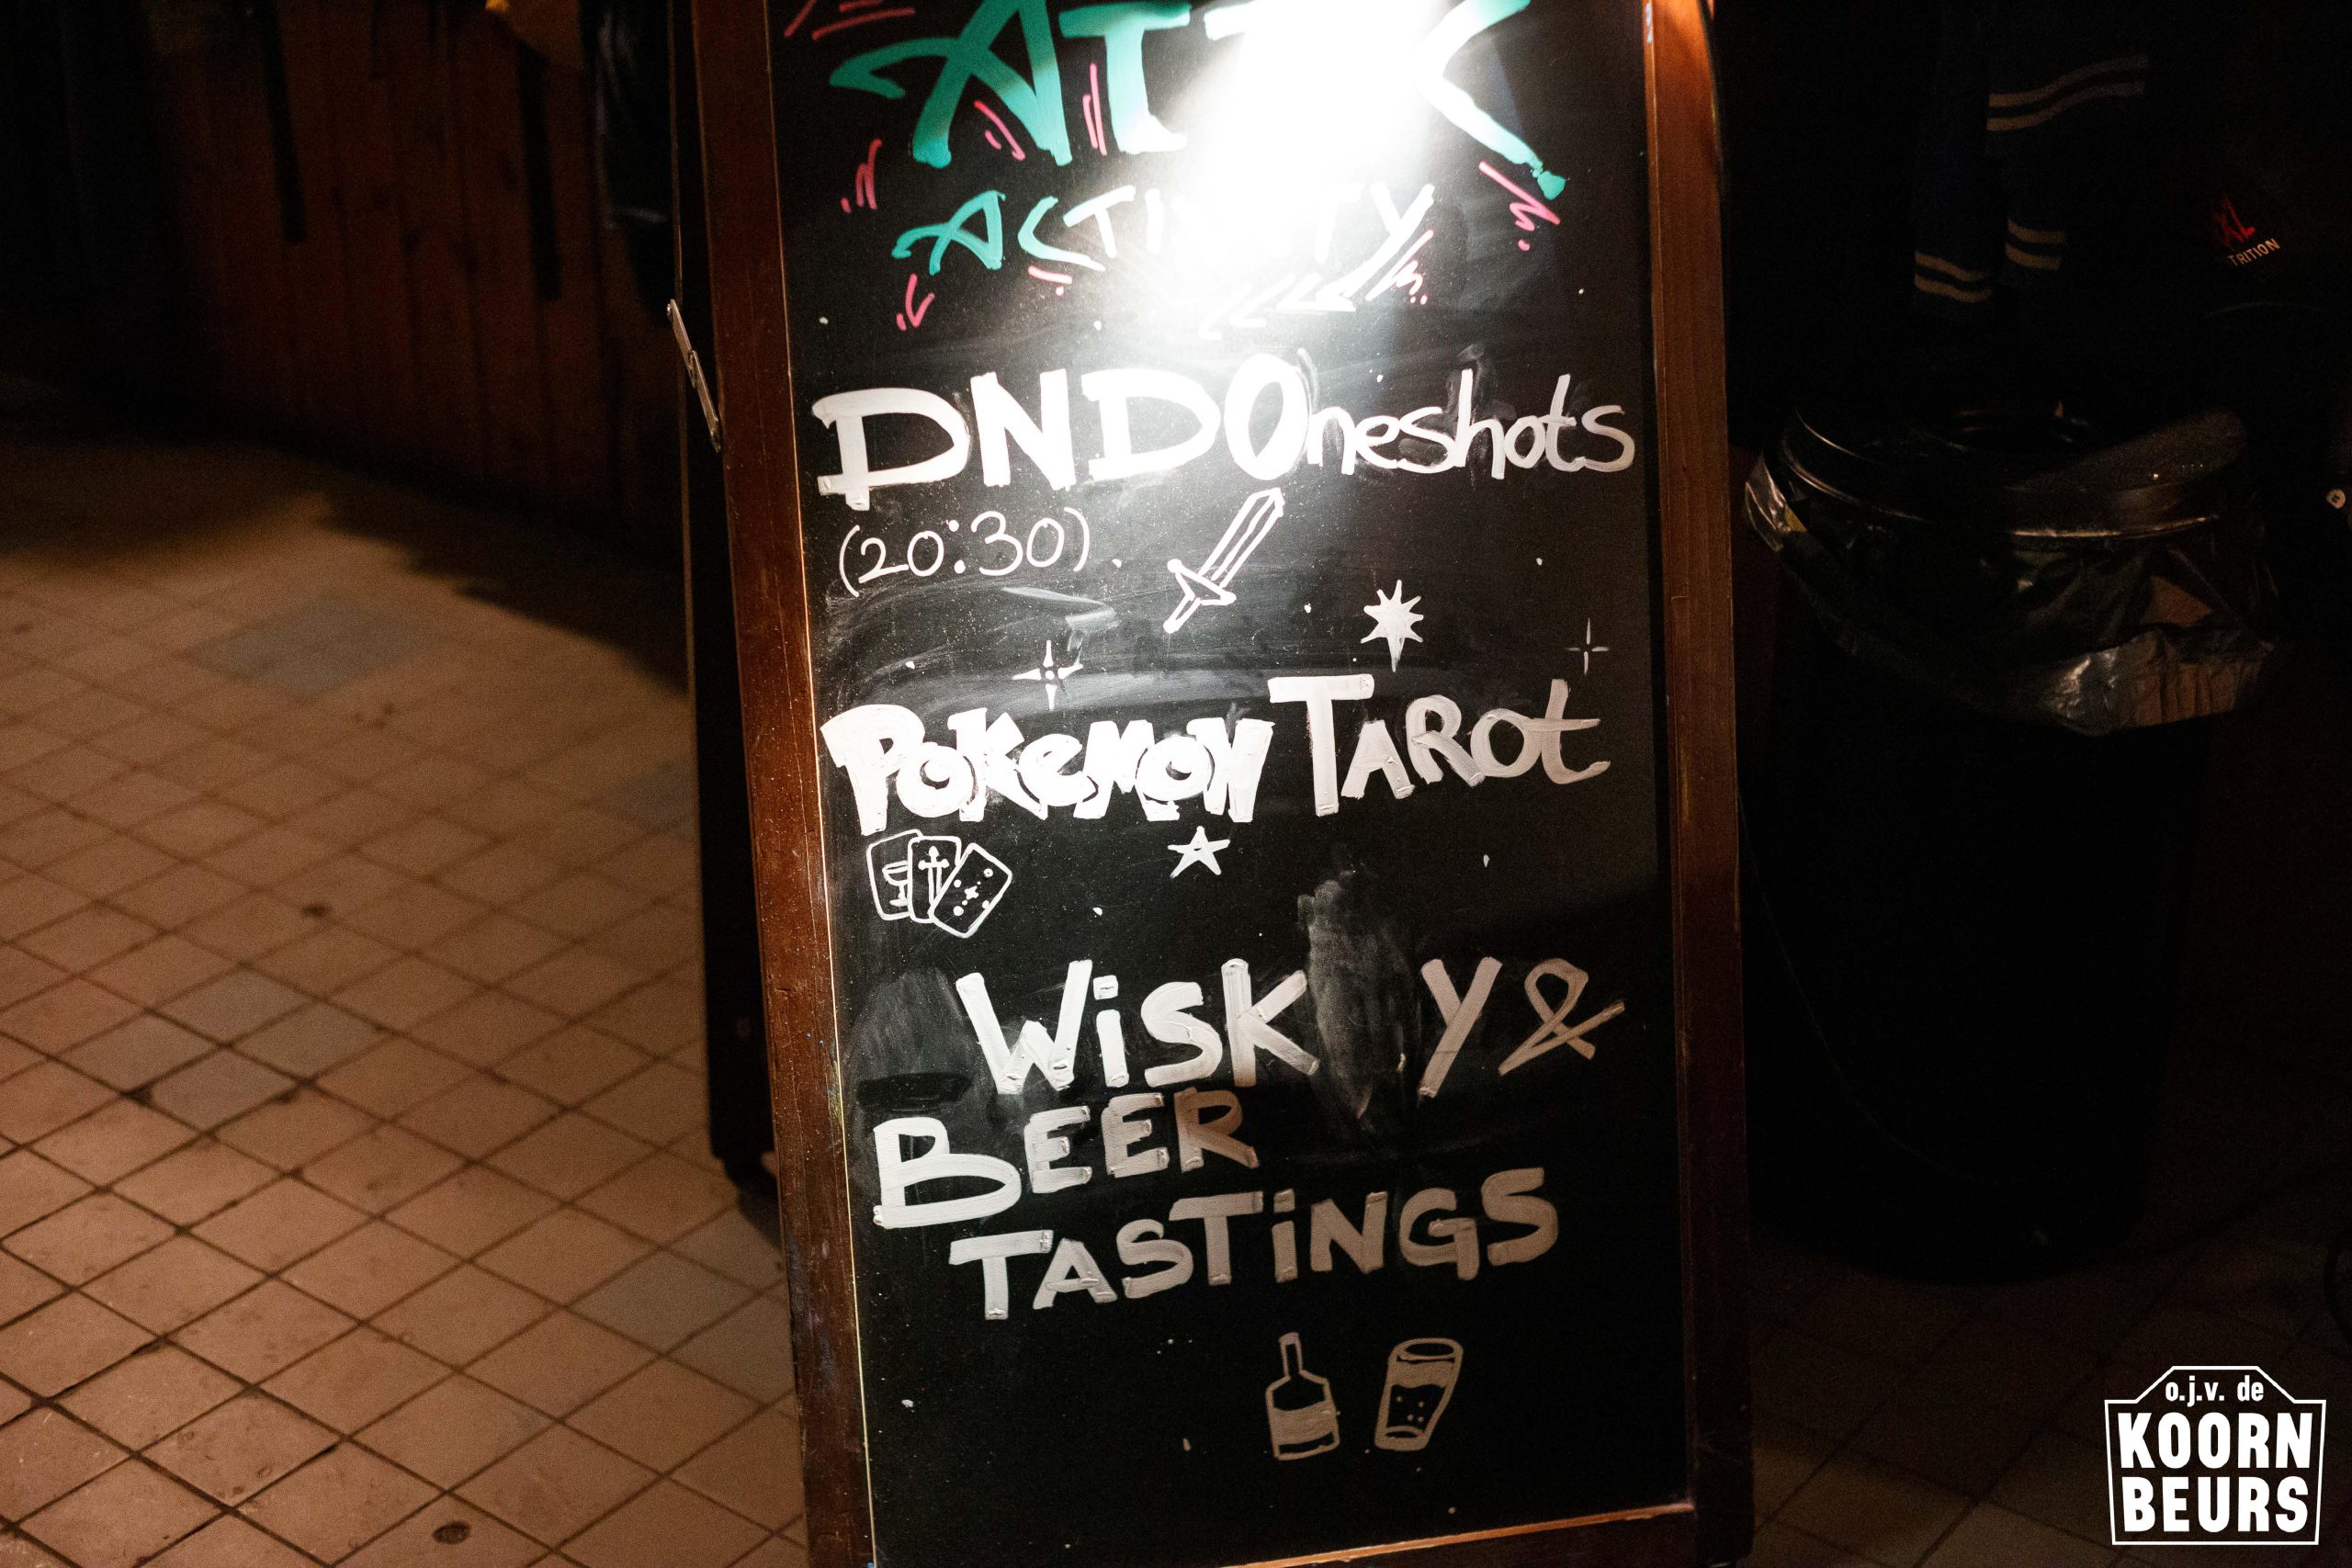 ACTIVITY
DND Oneshots
(20:30)
POKEMON TAROT
WISK Y &
BEER
TASTINGS
TRITION
o.j.v. de
KOORN
BEURS